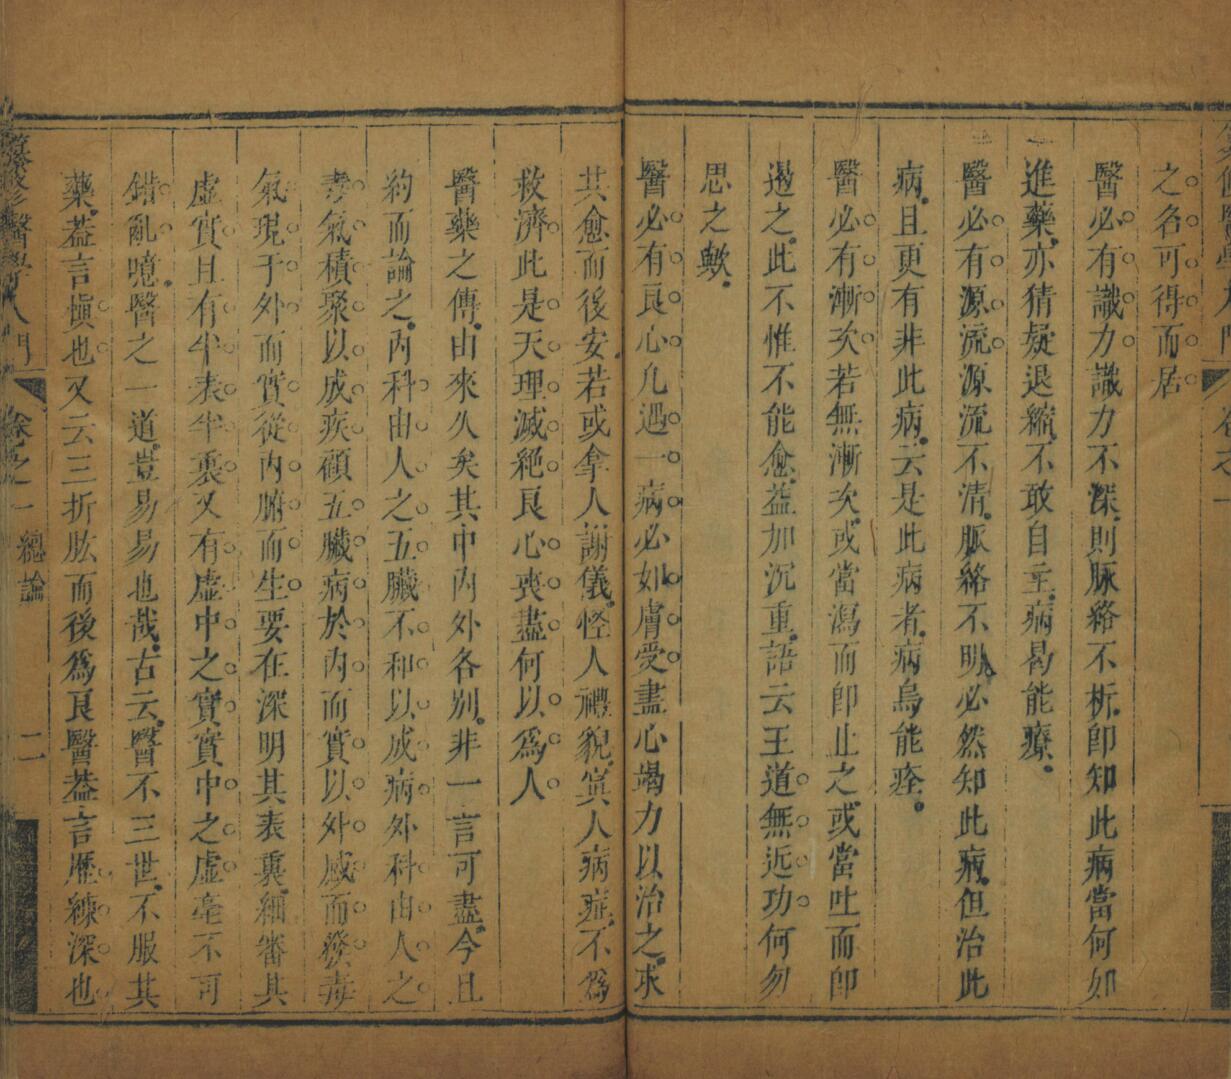 之名可得而居
醫必有識力識力不深則脉絡不析卽知此病當何如
進藥亦猜疑退縮不敢自主病曷能療
醫必有源流源流不清脈絡不明必然知此病但治此
病且更有非此病云是此病者病烏能痊
醫必有漸次若無漸次或當瀉而卽止之或當吐而卽
遏之此不惟不能愈益加沉重語云王道無近功何勿
思之歟
醫必有良心凡遇一病必如膚受盡心竭力以治之求
其愈而後安若或拿人謝儀怪人禮貌寘人病症不爲
救濟此是天理滅絕良心喪盡何以爲人
醫藥之傳由來久矣其中內外各別非一言可盡今且
約而論之內科由人之五臟不和以成病外科由人之
毒氣積聚以成疾顧五臟病於內而實以外感而發毒
氣現于外而實從內腑而生要在深明其表裏細審其
虛實且有半表半裏又有虛中之實實中之虛毫不可
錯亂噫醫之一道豈易易也哉古云醫不三世不服其
藥葢言愼也又云三折肱而後爲良醫葢言歷練深也
醫學入門 卷之一 總論 二